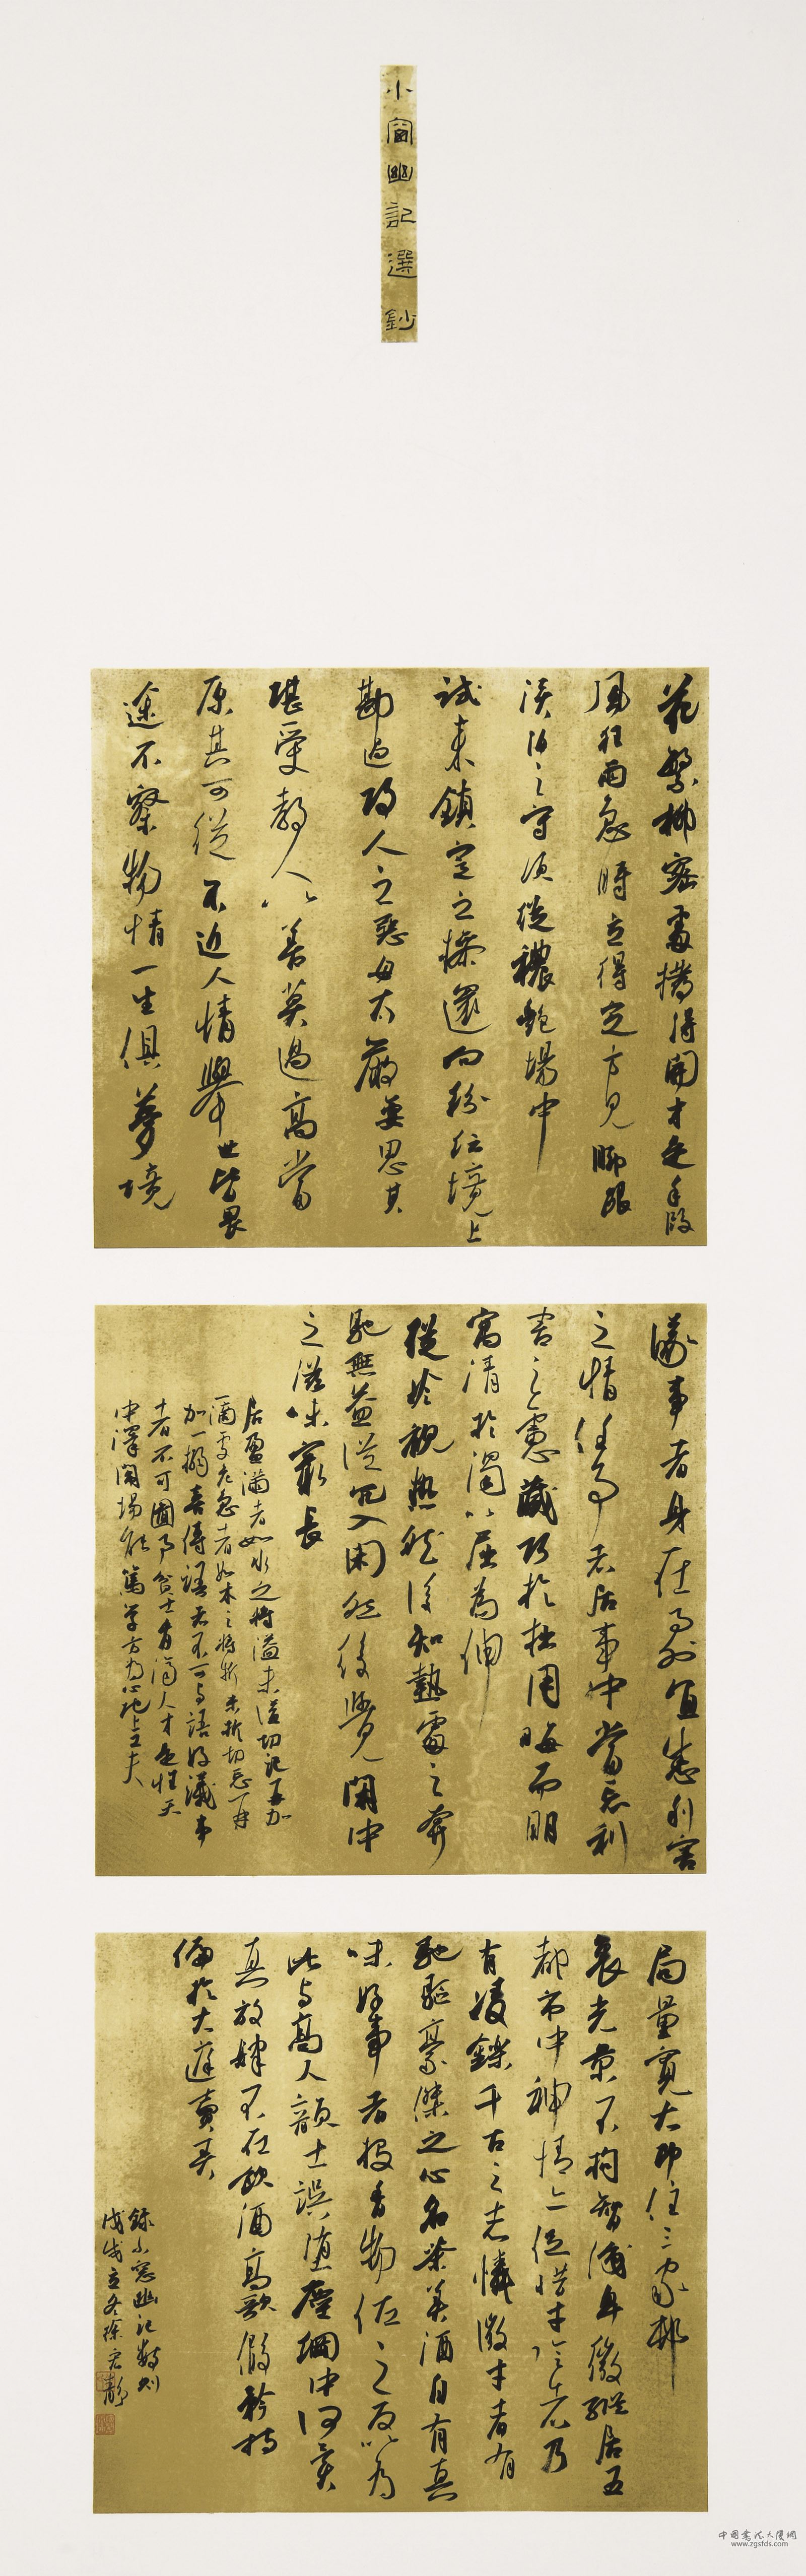 小窗幽記選鈔
花繁柳密處撥得開才是手段
風狂雨急時立得定方見腳跟
淡泊之守須從穠艷場中
試來鎮定之操還向紛紜境上
勘過攻人之惡毋太嚴要思其
堪受教人以善莫過高當
原其可從不近人情舉世皆畏
途不察物情一生俱夢境
議事者身在事外宜悉利害
之情任事者居事中當忘利
害之慮藏巧於拙用晦而明
寓清於濁以屈為伸
從冷視熱然後知熱處之奔
馳無益從冗入閑然後覺閑中
之滋味最長
居盈滿者如水之將溢未溢切忌再加
一滴處危急者如木之將折未折切忌再
加一搦喜傳語者不可與語好議事
者不可圖事貧士肯濟人才是性天
中澤鬧場能篤學方為心地上工夫
局量寬大即住三家村
裏光景不拘智識卑微縱居五
都市中神情亦促惜寸陰者乃
有凌鑠千古之志憐微才者有
馳驅豪傑之心名茶美酒自有真
味好事者投香物佐之反以為
此與高人韻士誤墮塵網中何異
真放肆不在飲酒高歌假矜持
偏於大庭賣弄
錄小窗幽記數則
戊戌立冬徐宏靜
中國書法大廈網
www.zgsfds.com